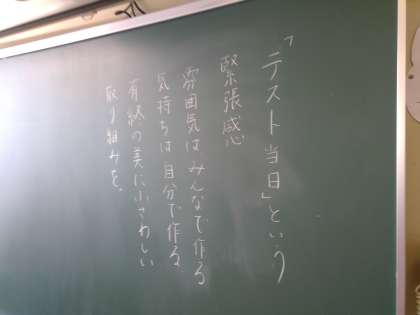 「テスト当日」という
緊張感
雰囲気はみんなで作る
気持ちは自分で作る
有終の美にふさわしい
取り組みを。